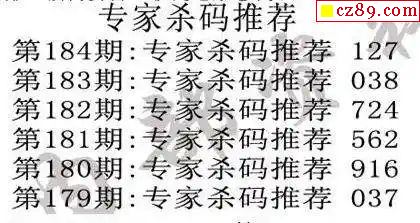 cz89.com
专家杀码推荐
第184期:专家杀码推荐 127
第183期:专家杀码推荐 038
第182期:专家杀码推荐 724
第181期:专家杀码推荐 562
第180期:专家杀码推荐 916
第179期:专家杀码推荐 037